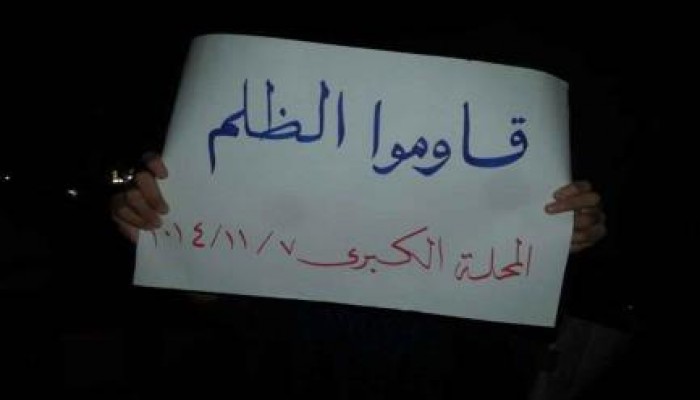 قاوموا الظلم
المحلة الكبرى ٢٠١٤/١١/٧